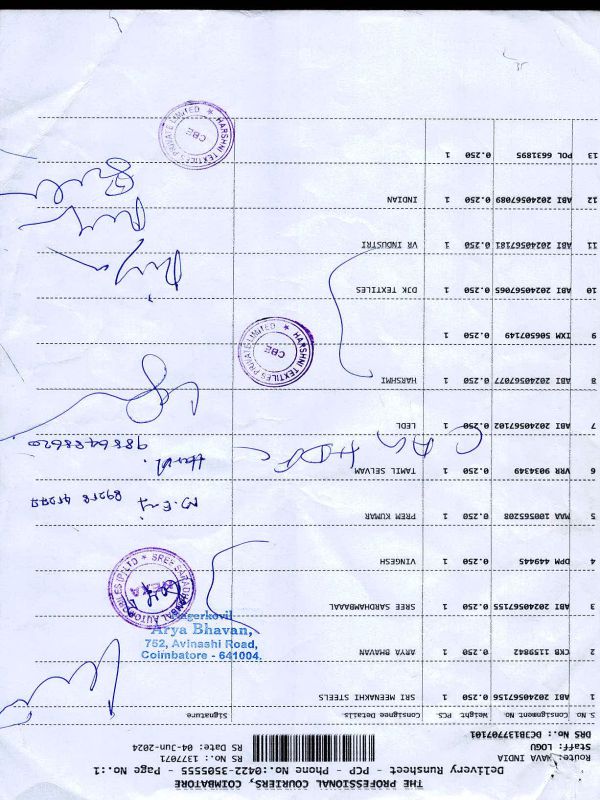 THE PROFESSIONAL COURIERS, COIMBATORE
Delivery Runsheet - PCP - Phone No.:0422-3505555 - Page No.:1
Route: NAVA INDIA
Staff: LOGU
DRS No.: DCB137707101
RS No.: 1377071
RS Date: 04-Jun-2024
S.No Consignment No Weight PCS Consignee Details Signature
1 ABI 20240567156 0.250 1 SRI MEENAKHI STEELS
2 CKB 1159842 0.250 1 ARYA BHAVAN
Nagerkovil
Arya Bhavan,
752, Avinashi Road,
Coimbatore - 641004.
3 ABI 20240567155 0.250 1 SREE SARDHAMBAAAL
4 DPM 449445 0.250 1 VINGESH
5 MAA 100565208 0.250 1 PREM KUMAR
6 VRR 9034349 0.250 1 TAMIL SELVAM
9886488620
7 ABI 20240567102 0.250 1 LEDL
8 ABI 20240567077 0.250 1 HARSHMI
HARSHNI TEXTILES PRIVATE LIMITED
CBE
9 IXM 506507149 0.250 1
10 ABI 20240567065 0.250 1 DJK TEXTILES
11 ABI 20240567181 0.250 1 VR INDUSTRI
12 ABI 20240567089 0.250 1 INDIAN
13 POL 6631895 0.250 1
HARSHNI TEXTILES PRIVATE LIMITED
CBE